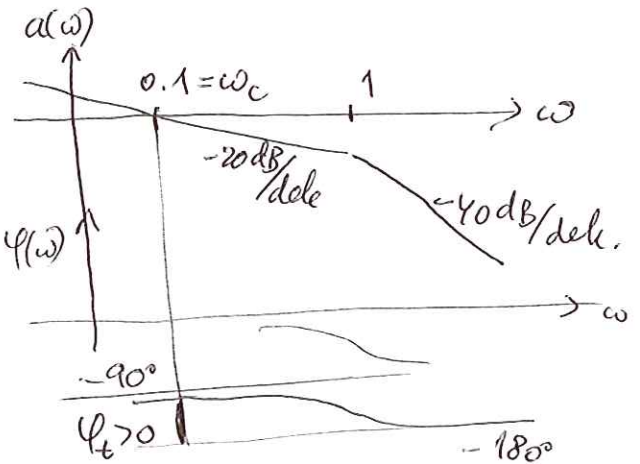 a(ω)
0.1=ωc 1
ω
-20dB/dek
-40dB/dek.
φ(ω)
ω
-90°
φt>0
-180°